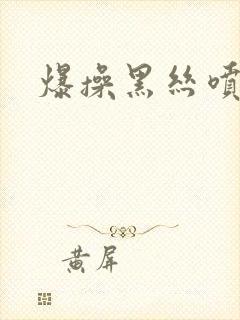 爆操黑丝噴
黄屏